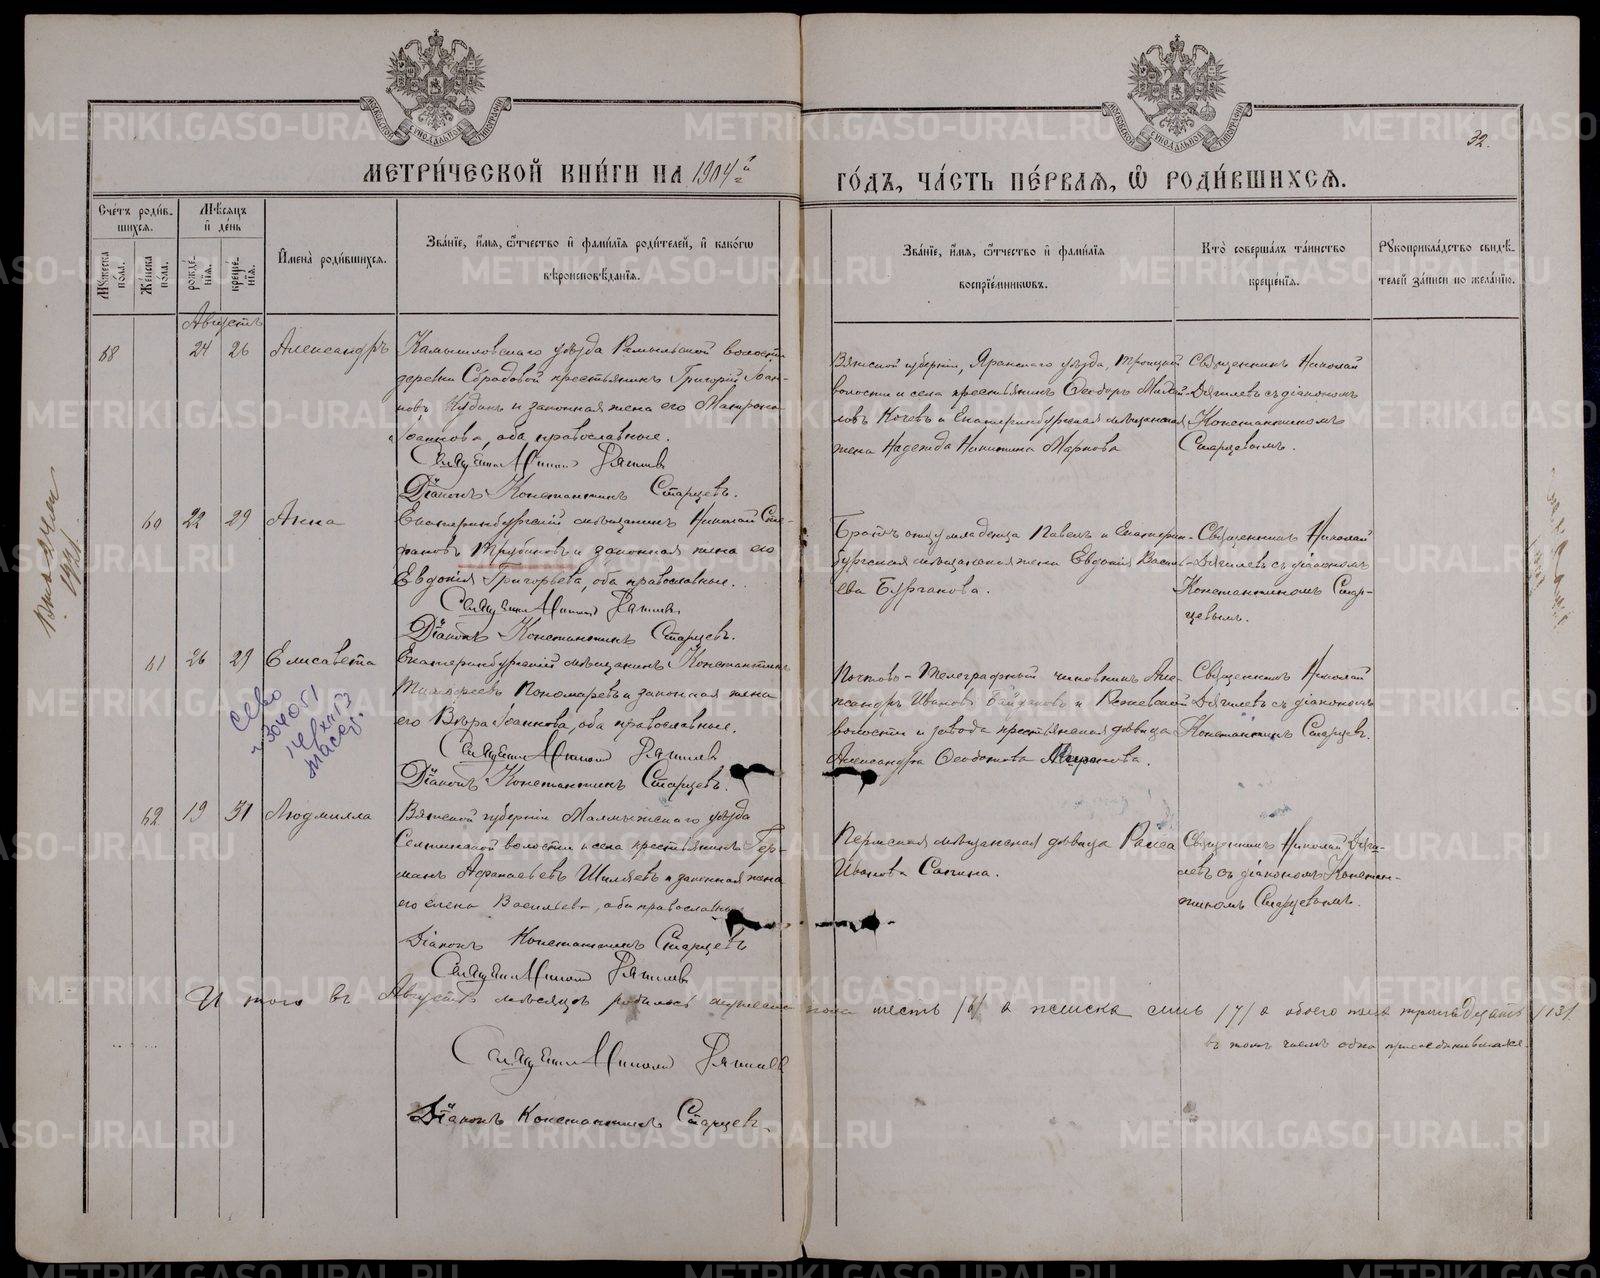 МЕТРИ́ЧЕСКОЙ КНИ́ГИ НА 1904 й
ГО́ДЪ, ЧА́СТЬ ПЕ́РВАѦ, Ѡ РОДИ́ВШИХСѦ.
32.
Сче́тъ роди́вшихсѧ.
Мѣ́сѧцъ и҆ де́нь
Мꙋ́жеска по́ла.
Же́нска по́ла.
рожде́нїѧ.
креще́нїѧ.
И҆мена̀ роди́вшихсѧ.
Зва́нїе, и҆́мѧ, ѻ҆́тчество и҆ фами́лїѧ роди́телей, и҆ како́гѡ
вѣроисповѣ́данїѧ.
Зва́нїе, и҆́мѧ, ѻ҆́тчество и҆ фами́лїѧ
воспрїе́мникѡвъ.
Кто̀ соверша́лъ та́инство
креще́нїѧ.
Рꙋкоприкла́дство свидѣ́
телей за́писи по жела́нїю.
Августъ
68 24 26 Александръ
Камышловскаго уѣзда волости
деревни крестьянинъ Григорій Іоан-
новъ и законная жена его
Іоаннова, оба православные.
Священникъ Николай Дягилевъ
Діаконъ Константинъ Старцевъ.
Вятской губерніи, Яранскаго уѣзда, Троицкой
волости и села крестьянинъ Ѳеодоръ
Кочевъ и Екатеринбургская мѣщанская
жена Надежда Никитина Маркова
Священникъ Николай
Дягилевъ съ діакономъ
Константиномъ
Старцевымъ.
60 22 29 Анна
Екатеринбургскій мѣщанинъ Николай Сте-
пановъ Трубиновъ и законная жена его
Евдокія Григорьева, оба православные.
Священникъ Николай Дягилевъ
Діаконъ Константинъ Старцевъ.
Братъ отца младенца Павелъ и Екатерин-
бургская мѣщанская жена Евдокія Василь-
ева Бурганова.
Священникъ Николай
Дягилевъ съ діакономъ
Константиномъ Стар-
цевымъ.
61 26 29 Елисавета
Екатеринбургскій мѣщанинъ Константинъ
Тимофеевъ Пономаревъ и законная жена
его Вѣра Іоаннова, оба православные.
Священникъ Николай Дягилевъ
Діаконъ Константинъ Старцевъ.
Почтово-Телеграфный чиновникъ Але-
ксандръ Ивановъ Байдаковъ и
волости и завода крестьянская дѣвица
Александра Ѳеодотова Миронова.
Священникъ Николай
Дягилевъ съ діакономъ
Константинъ Старцевъ.
62 19 31 Людмилла
Вятской губерніи Малмыжскаго уѣзда
Селтинской волости и села крестьянинъ Гер-
манъ Афанасьевъ Шиляевъ и законная жена
его Елена Васильева, оба православные
Діаконъ Константинъ Старцевъ
Священникъ Николай Дягилевъ
Пермская мѣщанская дѣвица Раиса
Иванова Сапина.
Священникъ Николай Дяги-
левъ съ діакономъ Констан-
тиномъ Старцевымъ.
Итого въ Августѣ мѣсяцѣ родилось мужеска пола шесть /6/ а женска семь /7/ а обоего пола тринадцать /13/.
въ томъ числѣ одна присоединившаяся.
Священникъ Николай Дягилевъ
Діаконъ Константинъ Старцевъ.
METRIKI.GASO-URAL.RU